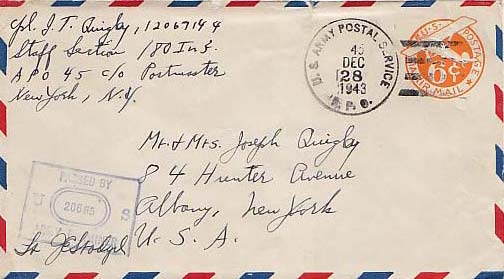 Cpl. J. T. Quigby, 12067144
Staff Section 180 Inf.
APO 45 c/o Postmaster
New York, N.Y.
U.S. ARMY POSTAL SERVICE
45
DEC
28
1943
A.P.O.
U.S. POSTAGE
6¢
AIR MAIL
Mr. & Mrs. Joseph Quigby
84 Hunter Avenue
Albany, New York
U. S. A.
PASSED BY
U 20685 S
ARMY EXAMINER